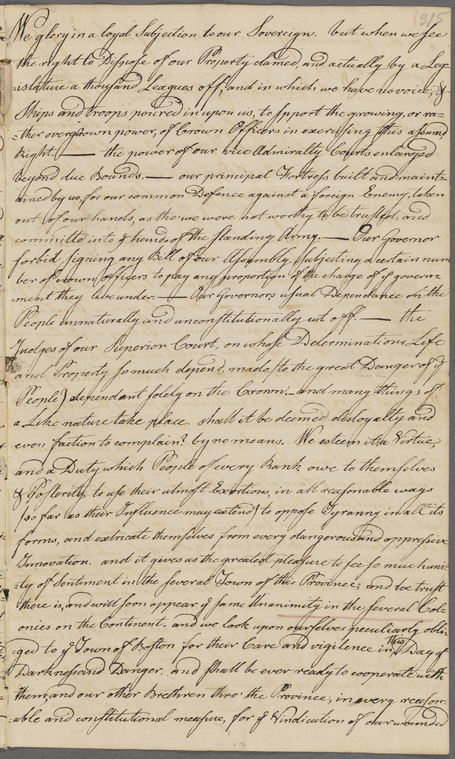 1315
We glory in a loyal Subjection to our Sovereign. but when we see
the right to Dispose of our Property claimed, and actually by a Leg-
islature a thousand Leagues off, and in which we have no voice, &
Ships and troops poured in upon us, to sport the growing, or ra-
-ther overgrown power, of Crown Officers in exercising this assumd
Right. — the power of our vice Admiralty Courts enlarged
beyond due Bounds. — our principal Fortress built and mainta-
ained by us, for our common Defence against a foreign Enemy, taken
out of our hands, as tho we were not worthy to be trusted, and
committed into ye hands of the standing Army. — Our Governor
forbid signing any Bill of our Assembly, Subjecting a certain num
ber of crown officers to pay any proportion of the charge of ye governe-
ment they live under. — Our Governors usual Dependance on the
People unnaturally and unconstitutionally cut off — the
Judges of our Superior Court, on whose Determinations, Life
and Property so much depend, made (to the great Danger of ye
People) dependant solely on the Crown — and many things of
a Like nature take place. shall it be deemed disloyalty and
even faction to complain? by no means. We esteem it a Virtue
and a Duty which People of every Rank owe to themselves
& Posterity, to use their utmost Exertions, in all reasonable ways
(so far as their Influence may extend) to oppose Tyranny in all its
forms, and extricate themselves from every dangerous and oppressive
Innovation. and it gives us the greatest pleasure to see so much uni-
ty of Sentiment in the several Town of this Province; and we trust
there is, and will soon appear ye same Unanimity in the several Colo
onies on the Continent. and we look upon ourselves peculiarly obli-
ged to ye Town of Boston for their Care and vigilence in this Day of
Darkness and Danger. and shall be ever ready to cooperate with
them, and our other Brethren thro' the Province, in every reason-
able and constitutional measure, for ye Vindication of our wounded